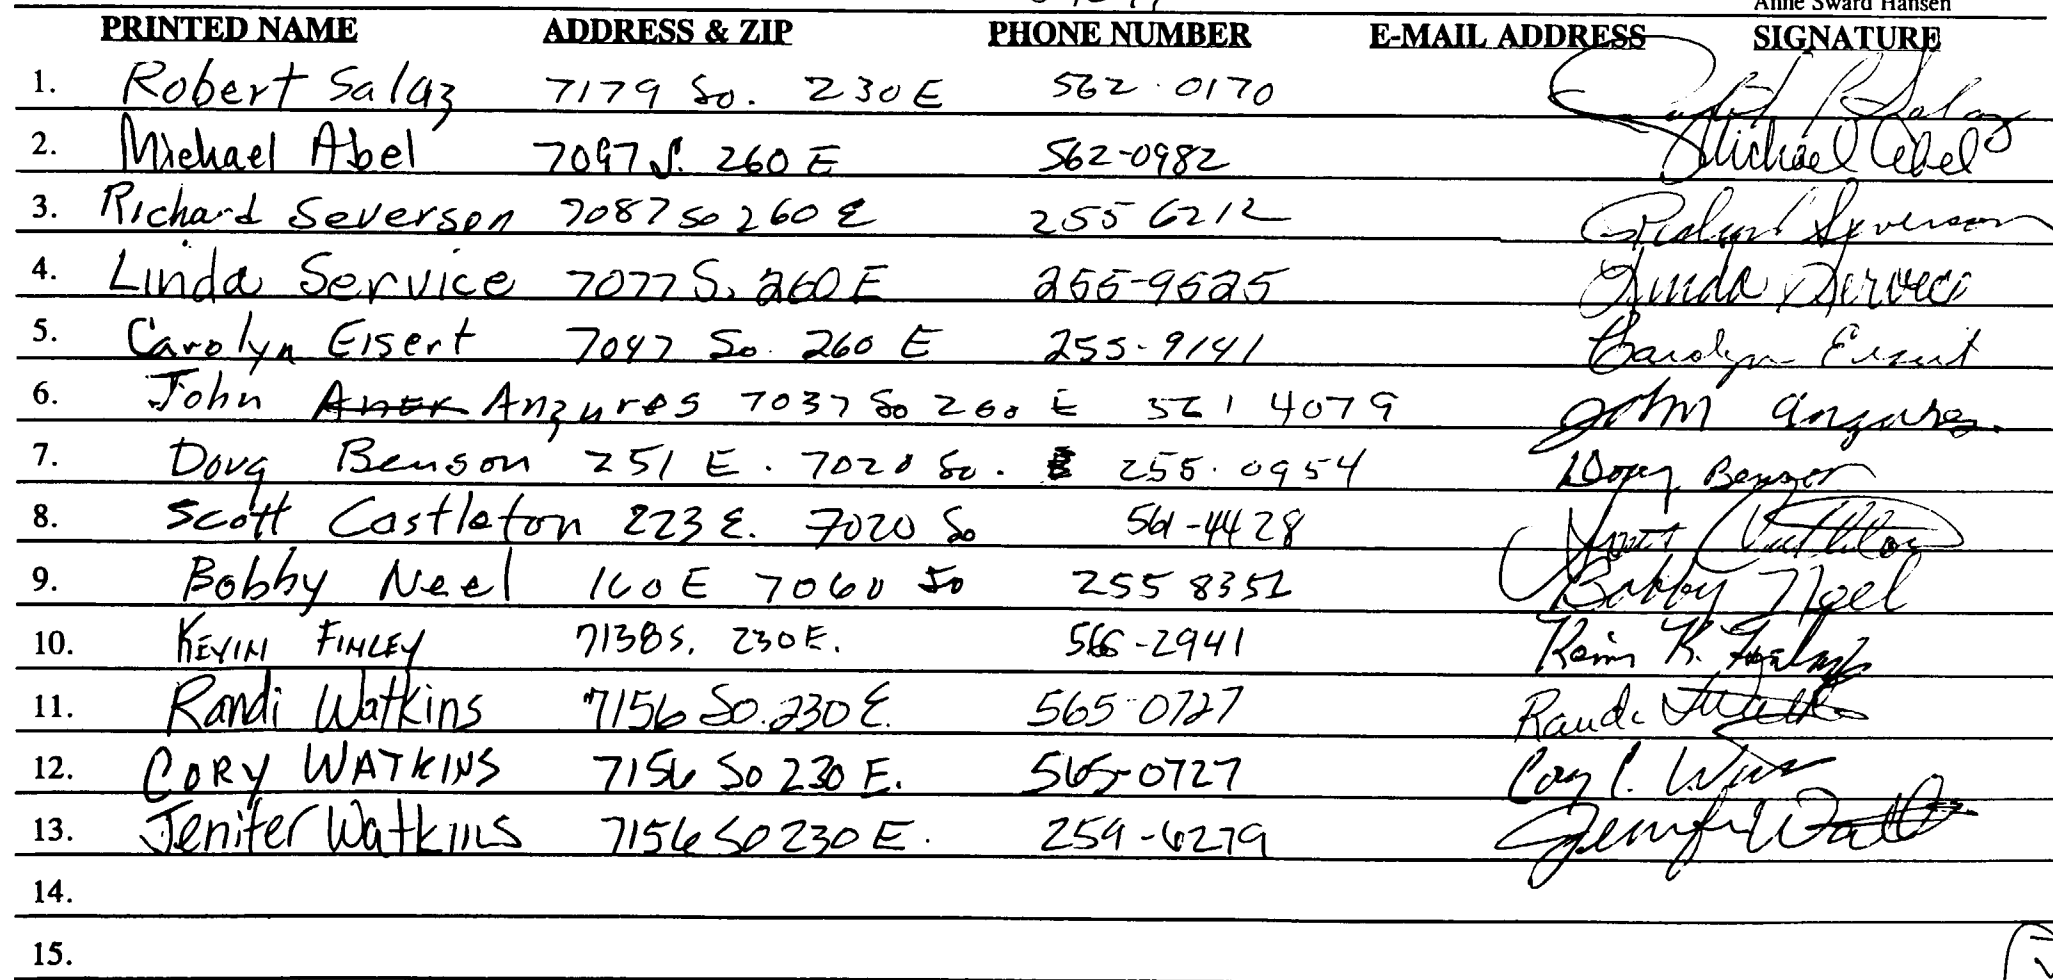 Anne Sward Hansen
PRINTED NAME ADDRESS & ZIP PHONE NUMBER E-MAIL ADDRESS SIGNATURE
1. Robert Salaz 7179 So. 230 E 562-0170 Robert P Salaz
2. Michael Abel 7097 S. 260 E 562-0982 Michael Abel
3. Richard Severson 7087 So 260 E 255 6212 Richard Severson
4. Linda Service 7077 S. 260 E 255-9525 Linda Service
5. Carolyn Eisert 7047 So. 260 E 255-9141 Carolyn Eisert
6. John Anzures 7037 So 260 E 561 4079 John Anzures
7. Doug Benson 251 E. 7020 So. 255-0954 Doug Benson
8. Scott Castleton 223 E. 7020 So 561-4428 Scott Castleton
9. Bobby Neel 160 E 7060 So 255 8352 Bobby Neel
10. KEVIN FINLEY 7138 S. 230 E. 566-2941 Kevin K. Finley
11. Randi Watkins 7156 So. 230 E. 565-0727 Randi Watkins
12. CORY WATKINS 7156 So 230 E. 565-0727 Cory C.
13. Jenifer Watkins 7156 So 230 E. 259-6279 Jenifer Watkins
14.
15.